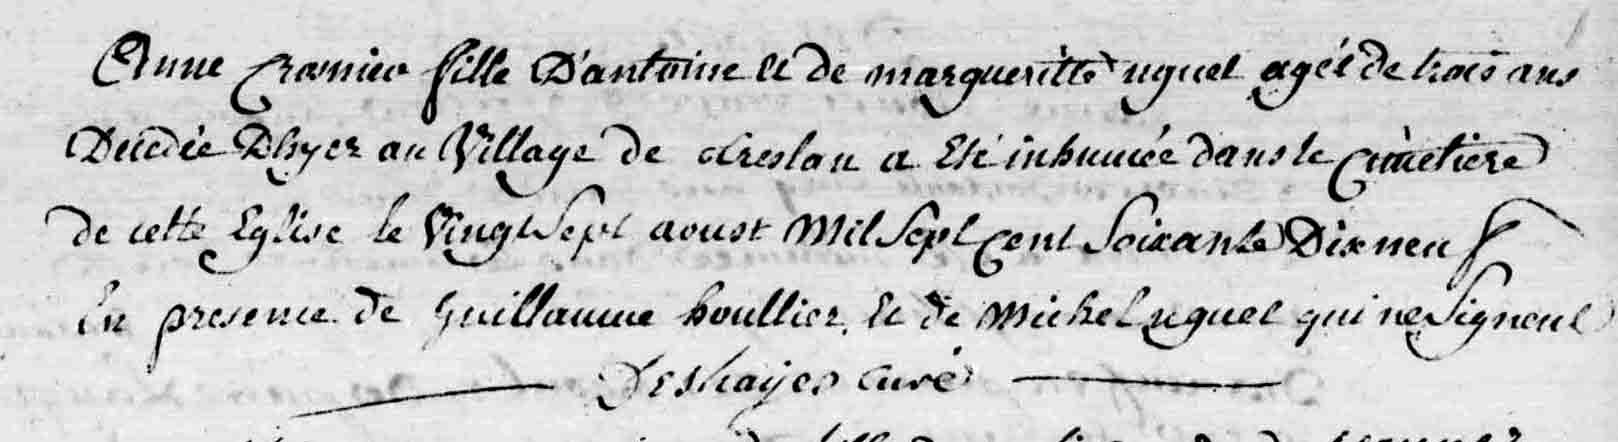 Anne Cromier fille D'antoine et de margueritte uguet agéé de trois ans
Decedée Dhyer au Village de Creslau a Eté inhumée dans le Cimetiere
de cette Eglise le Vingt Sept aoust Mil Sept Cent Soixante Dixneuf
En presence de Guillaume houllier et de Michel uguet qui ne Signent
Deshayes curé